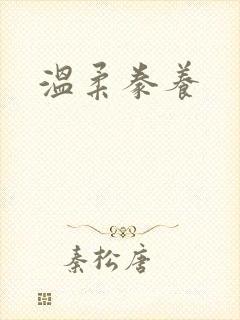 溫柔豢養
秦松唐